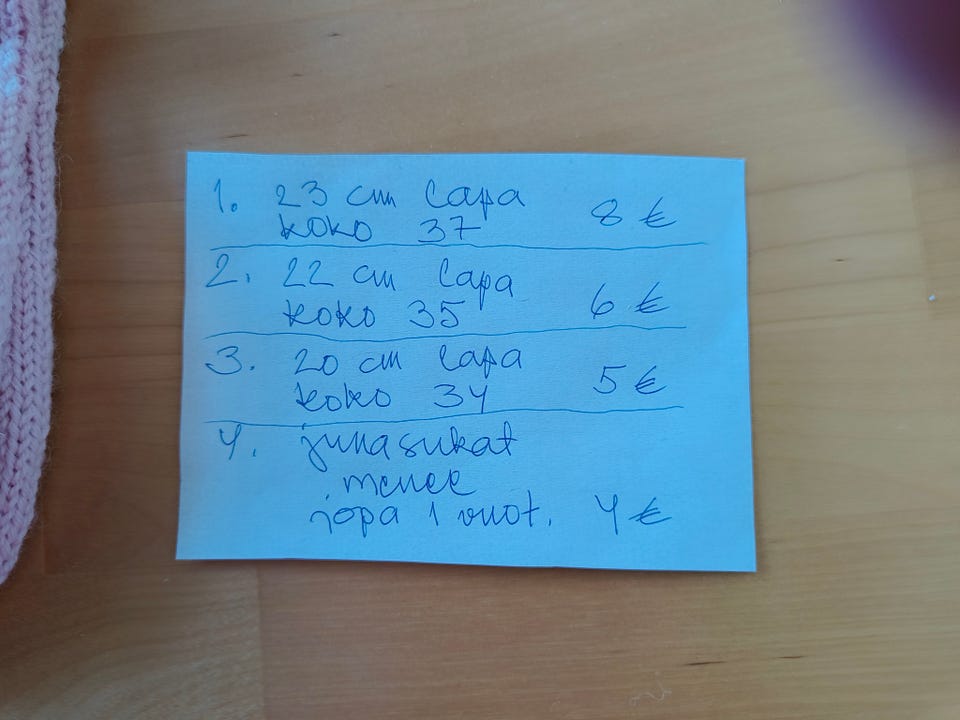 1. 23 cm lapa
koko 37 8 €
2. 22 cm lapa
koko 35 6 €
3. 20 cm lapa
koko 34 5 €
4. junasukat
menee
jopa 1 vuot. 4 €